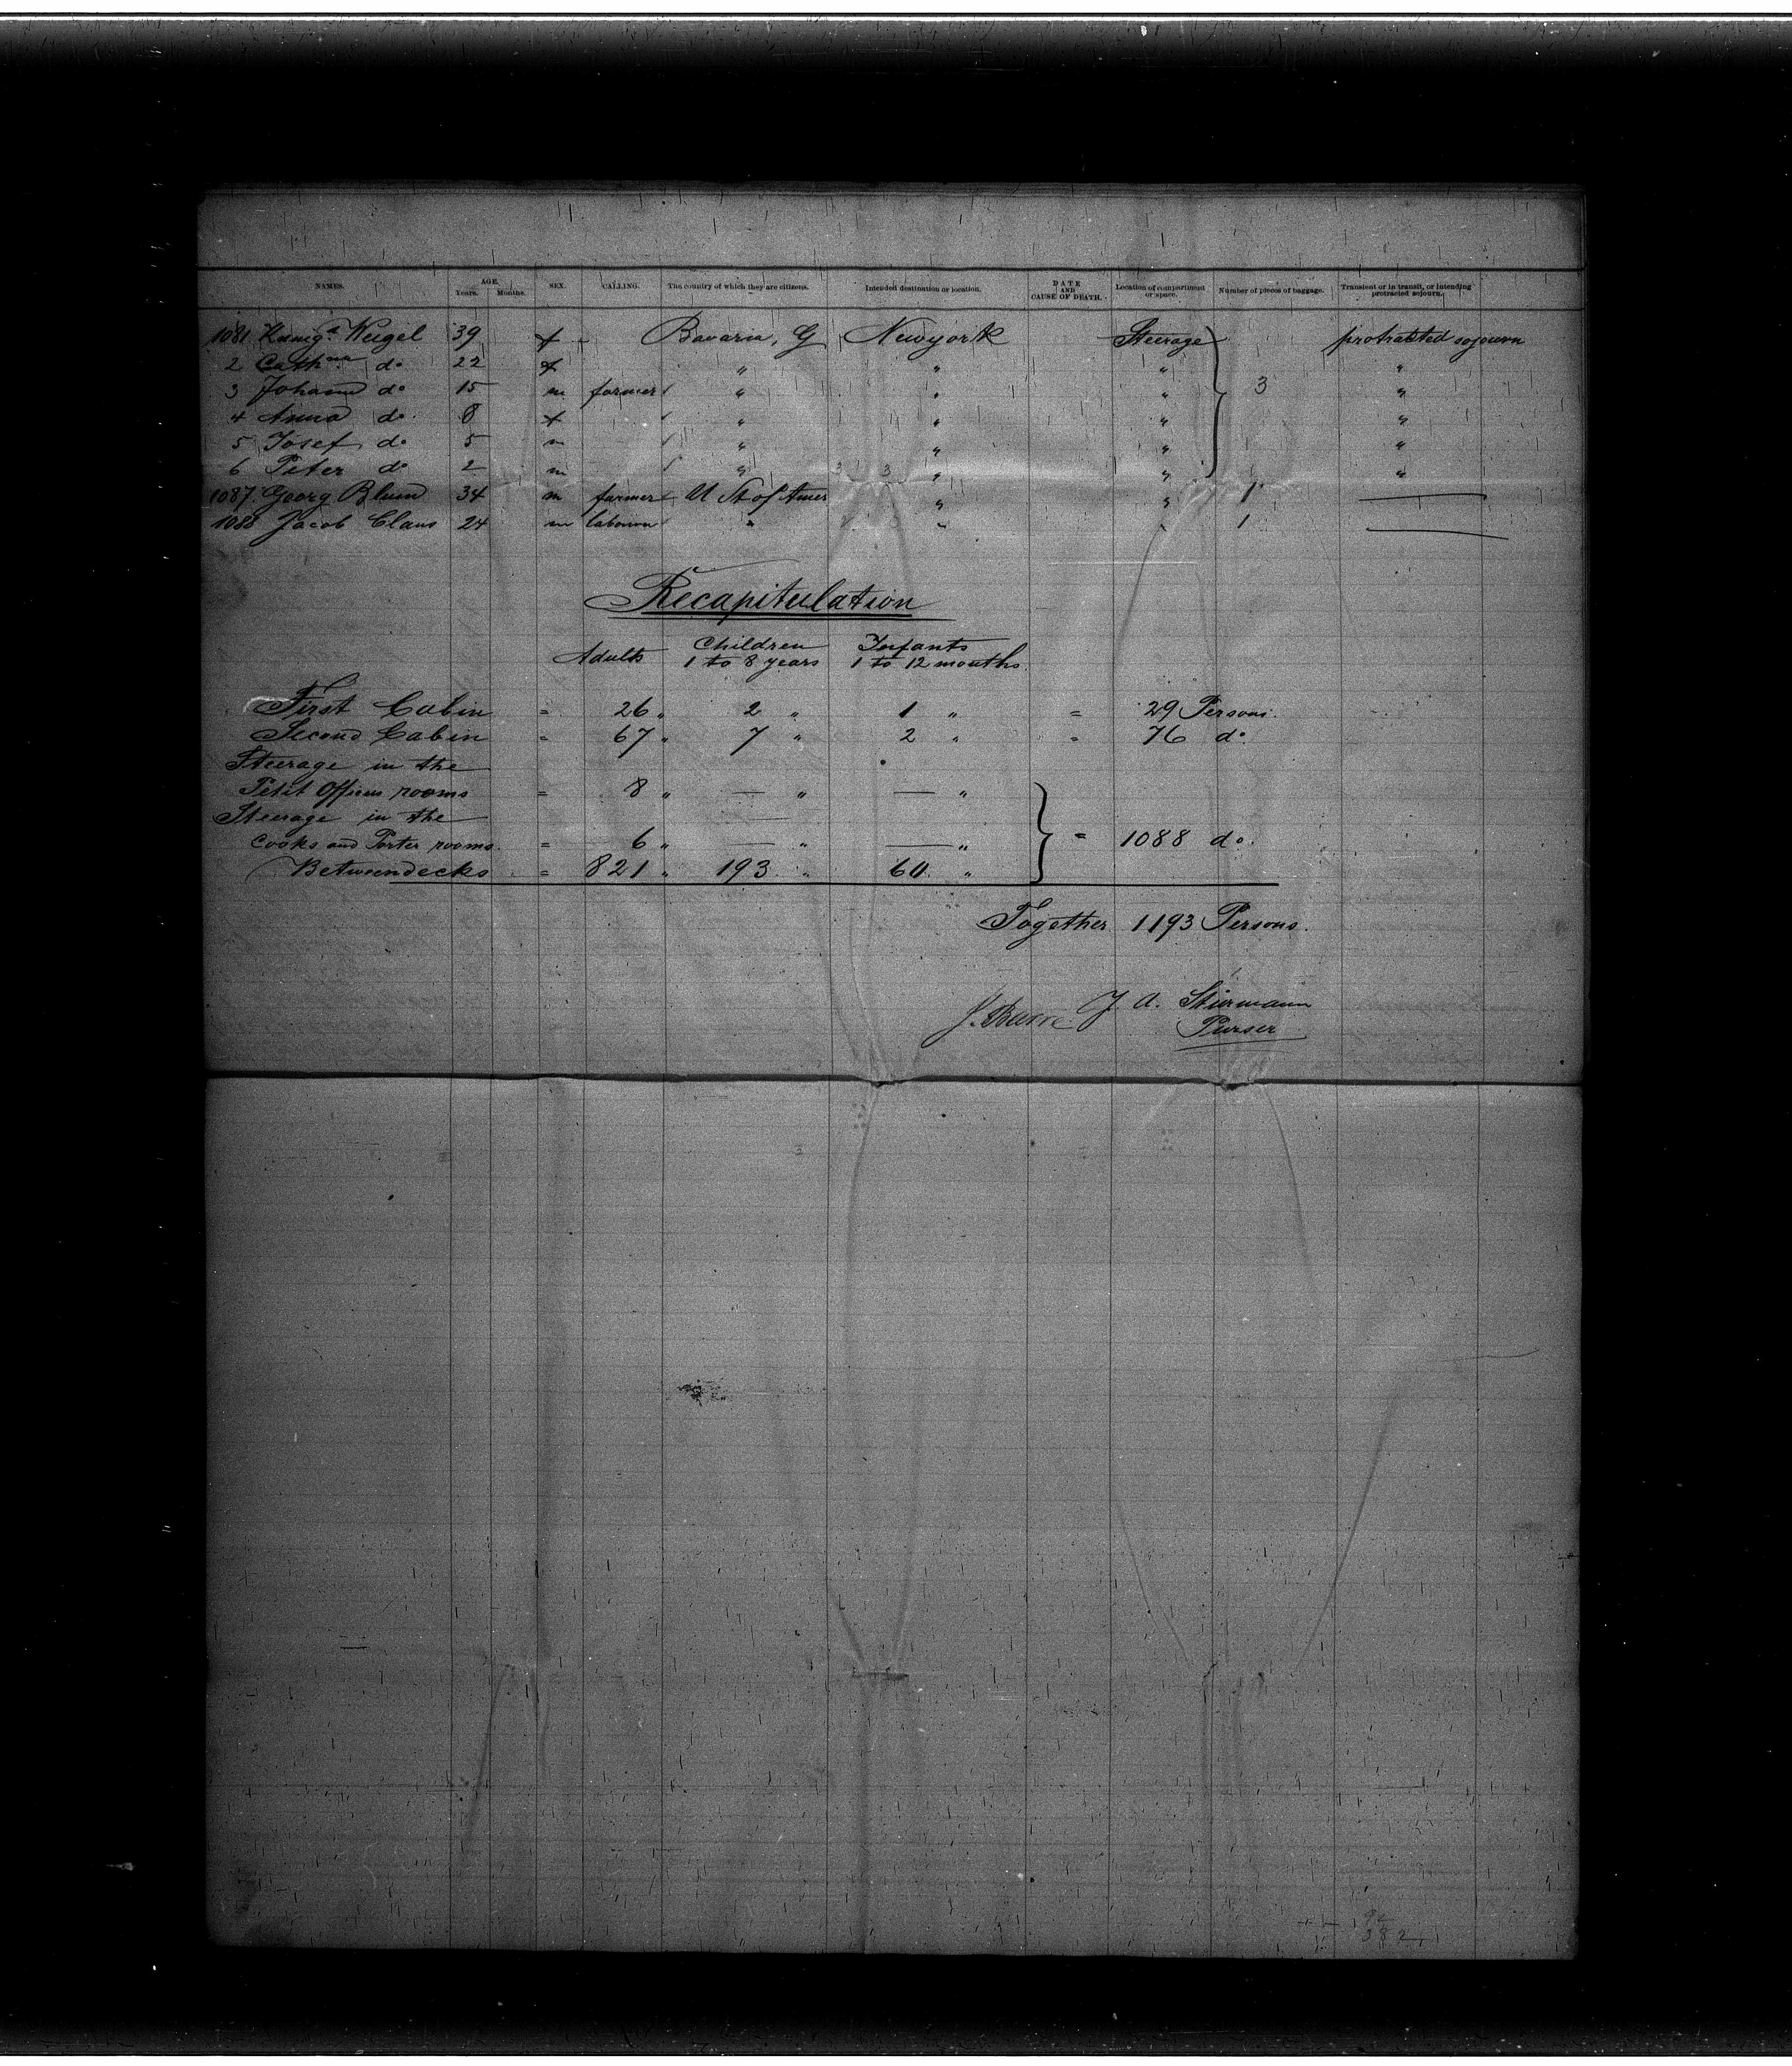 NAMES. AGE. Years. Months. SEX. CALLING. The country of which they are citizens. Intended destination or location. DATE AND CAUSE OF DEATH. Location of compartment or space. Number of pieces of baggage. Transient or in transit, or intending protracted sojourn.
1081 Weigel 39 f - Bavaria, G Newyork Steerage protracted sojourn
2 Cathna do 22 f " " " "
3 Johann do 15 m farmer " " " 3 "
4 Anna do 8 f " " " "
5 Josef do 5 m " " " "
6 Peter do 2 m " " " "
1087. Georg Blum 34 m farmer U St of Amer " " 1 —
1088 Jacob Claus 24 m labourer " " " 1 —
Recapitulation
Adults Children 1 to 8 years Infants 1 to 12 months
First Cabin = 26 " 2 " 1 " = 29 Persons.
Second Cabin = 67 " 7 " 2 " = 76 do.
Steerage in the
Petit Officers rooms = 8 " — " — "
Steerage in the
Cooks and Porter rooms. = 6 " — " — " } = 1088 do.
Betweendecks = 821 " 193 " 60 "
Together 1193 Persons.
J. A. Stürmann
Purser
382